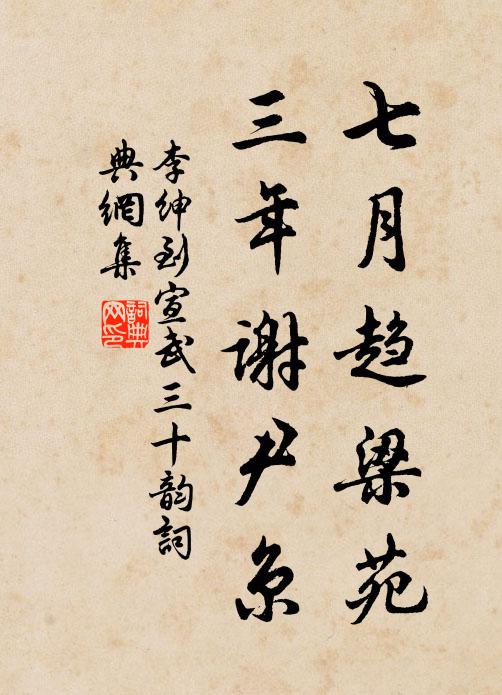 七月趋梁苑
三年谢尹京
李绅到宣武三十韵词
典網集
詞典
网印